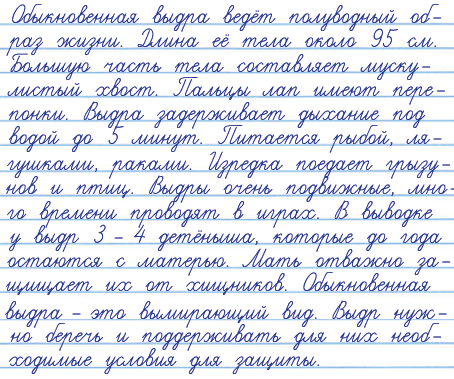 Обыкновенная выдра ведёт полуводный об-
раз жизни. Длина её тела около 95 см.
Большую часть тела составляет муску-
листый хвост. Пальцы лап имеют пере-
понки. Выдра задерживает дыхание под
водой до 5 минут. Питается рыбой, ля-
гушками, раками. Изредка поедает грызу-
нов и птиц. Выдры очень подвижные, мно-
го времени проводят в играх. В выводке
у выдр 3 – 4 детёныша, которые до года
остаются с матерью. Мать отважно за-
щищает их от хищников. Обыкновенная
выдра – это вымирающий вид. Выдр нуж-
но беречь и поддерживать для них необ-
ходимые условия для защиты.